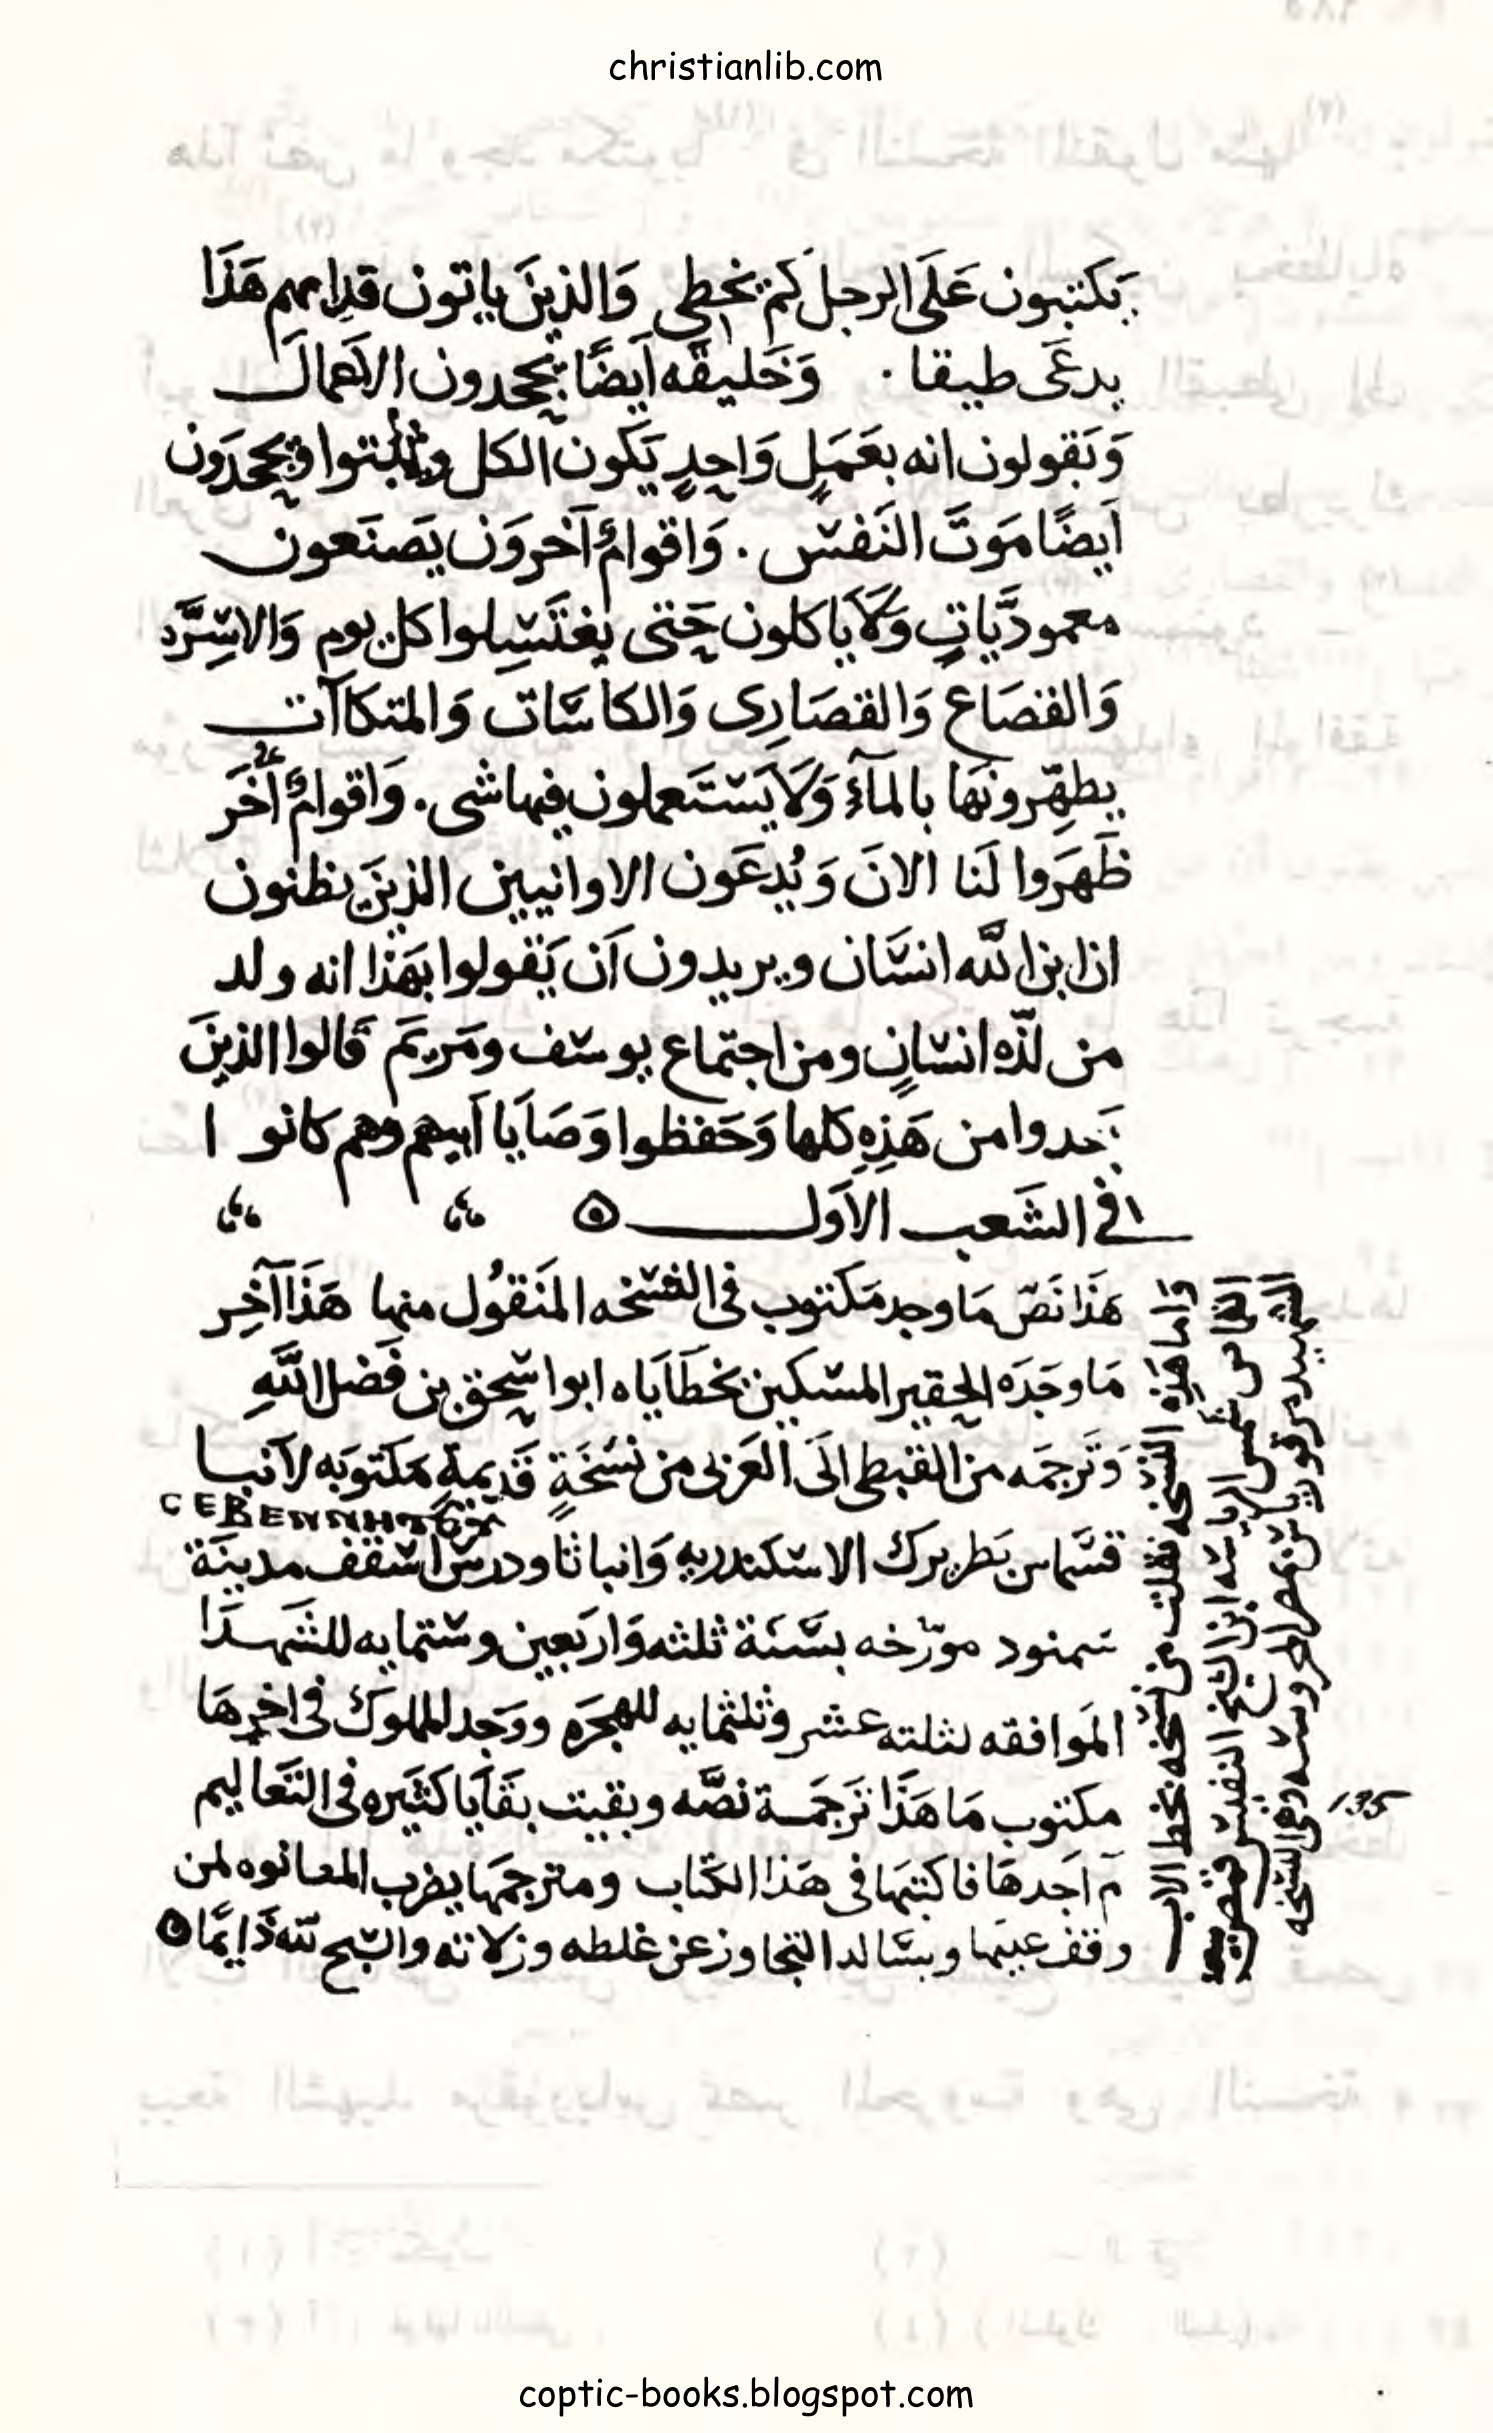 christianlib.com
يَكتبون عَلَى الرجل كم يخطي وَالذينَ ياتون قدامهم هَذَا
يدعَى طبيقا . وَخَليقَه اَيضًا يجحدون الاعمال
وَيَقولون انه بعَمَلٍ وَاحِدٍ يَكون الكل ويجحدَون
اَيضًا مَوتَ النَفس . وَاقوامٌ آخروَن يَصنَعون
معموديَّاتٍ وَلَا ياكلون حَتى يغتَسِلوا كل يوم وَالاسِرَّه
وَالقصَاع وَالقصَارِى وَالكاسَات وَالمتكاآت
يطهِّرونَها بالمآءِ وَلَا يَستَعملون فيها شى . وَاقوامٌ أُخَر
ظَهَرَوا لَنا الانَ وَيُدعَون الاوانيين الذينَ يظنون
ان ابن الله انسَان ويريدون اَن يَقولوا بهَذا انه ولد
من لذّه انسَانٍ ومن اجتماع يوسَف ومَريَم قَالوا الذينَ
من هَذِهِ كلها وَحَفظوا وَصَايَا اَبيهم وهم كانوا
في الشَعب الاَول
هَذَا نَصّ مَا وجد مَكتوب فى النسخه المَنقُول منها هَذَا آخِر
مَا وجَدَه الحقير المسكين بخطَايَاه ابوا سحق بن فَضل اللَّهِ
وَتَرجمَه من القبطى الَى العَربى من نسَخَةٍ قَديمةٍ مَكتوبَه لاَنبا
ⲤⲈⲂⲈⲚⲚⲎⲦⲞⲨ
قسَّماس بَطريرك الاسكندريه وَانبا تاودرس اسقف مدينَة
سمنود مورّخه بسَنَة ثلثه وَاربَعين وستمايه للشَهدَا
المَوافقه لثلته عشر وثلثمايه للهجرَه ووَجد المملوك فى اخرهَا
مكتوب مَا هَذَا تَرجمَة نصَّه وبقيت بقَايَا كثيَره فى التَعاليم
لم اَجدهَا فاكتبها فى هَذا الكتاب ومترجمَها يضرب المطانوه لمن
وقف عليَها ويسَاله التجاوز عن غلطه وزلاته والسبح لله دَايمًا
وَاما هَذِه النسخه نقلت من نسخه بخط الاب
القس شمس الرياسه ابن الشيخ النفيس
الشهيد مرقوريوس بمصر المحروسَه وهى النسخه
coptic-books.blogspot.com